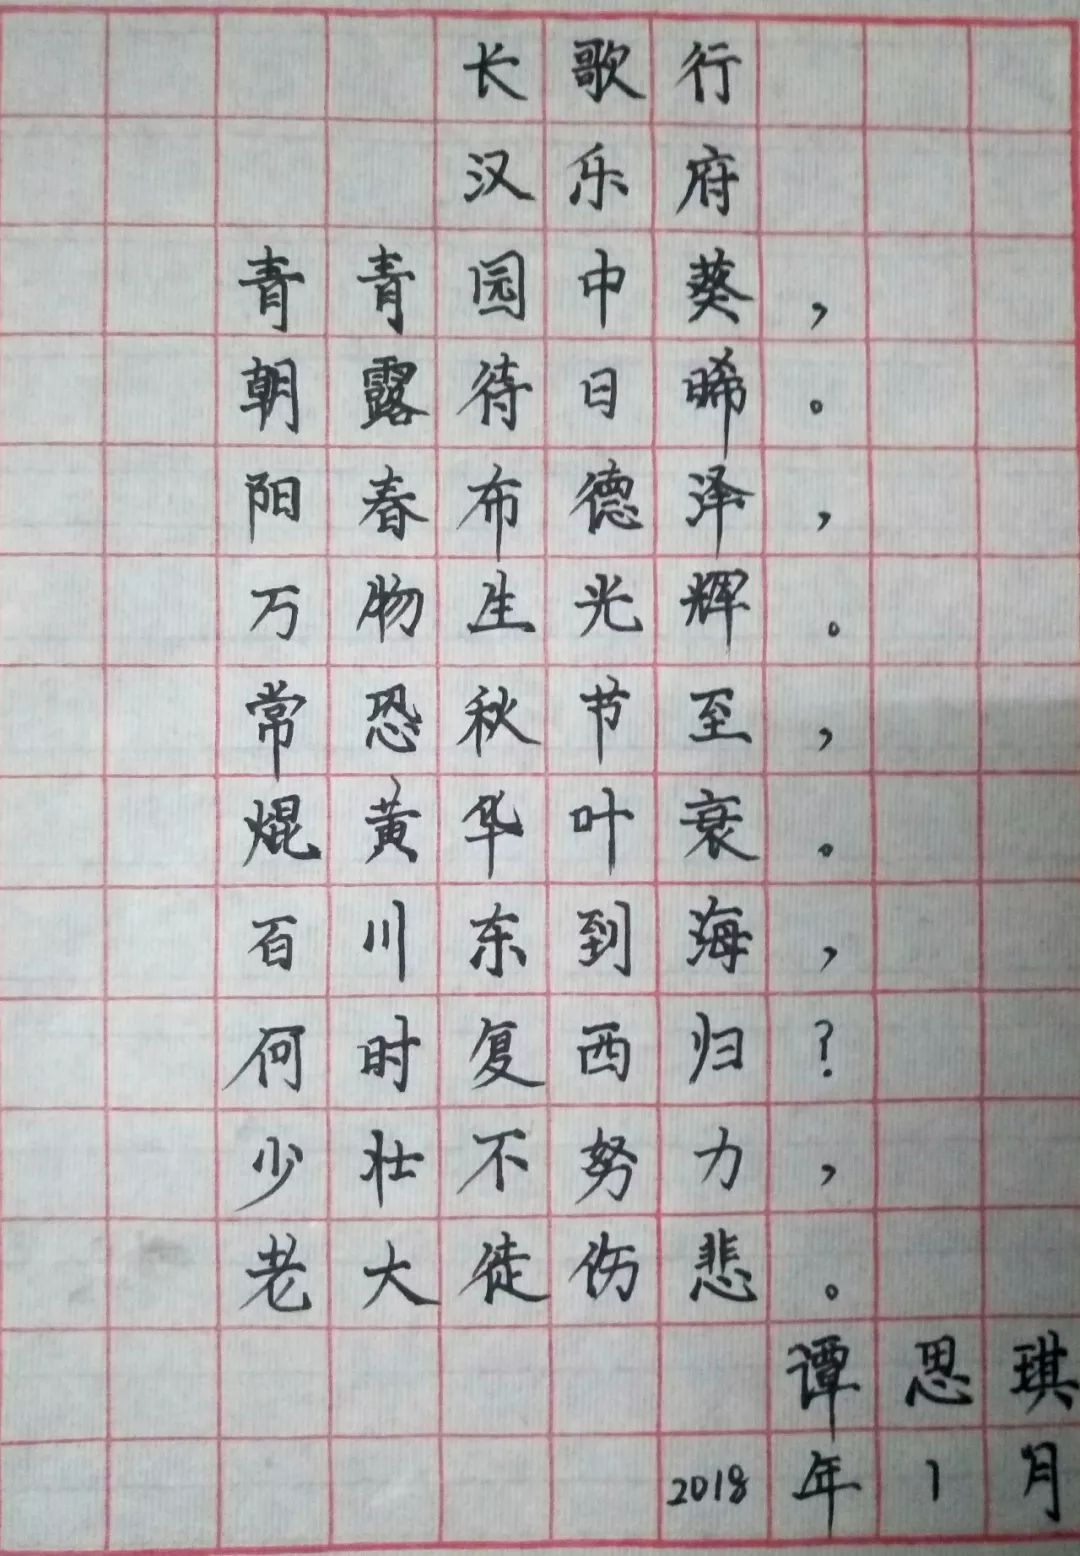 长歌行
汉乐府
青青园中葵，
朝露待日晞。
阳春布德泽，
万物生光辉。
常恐秋节至，
焜黄华叶衰。
百川东到海，
何时复西归？
少壮不努力，
老大徒伤悲。
谭思琪
2018年1月